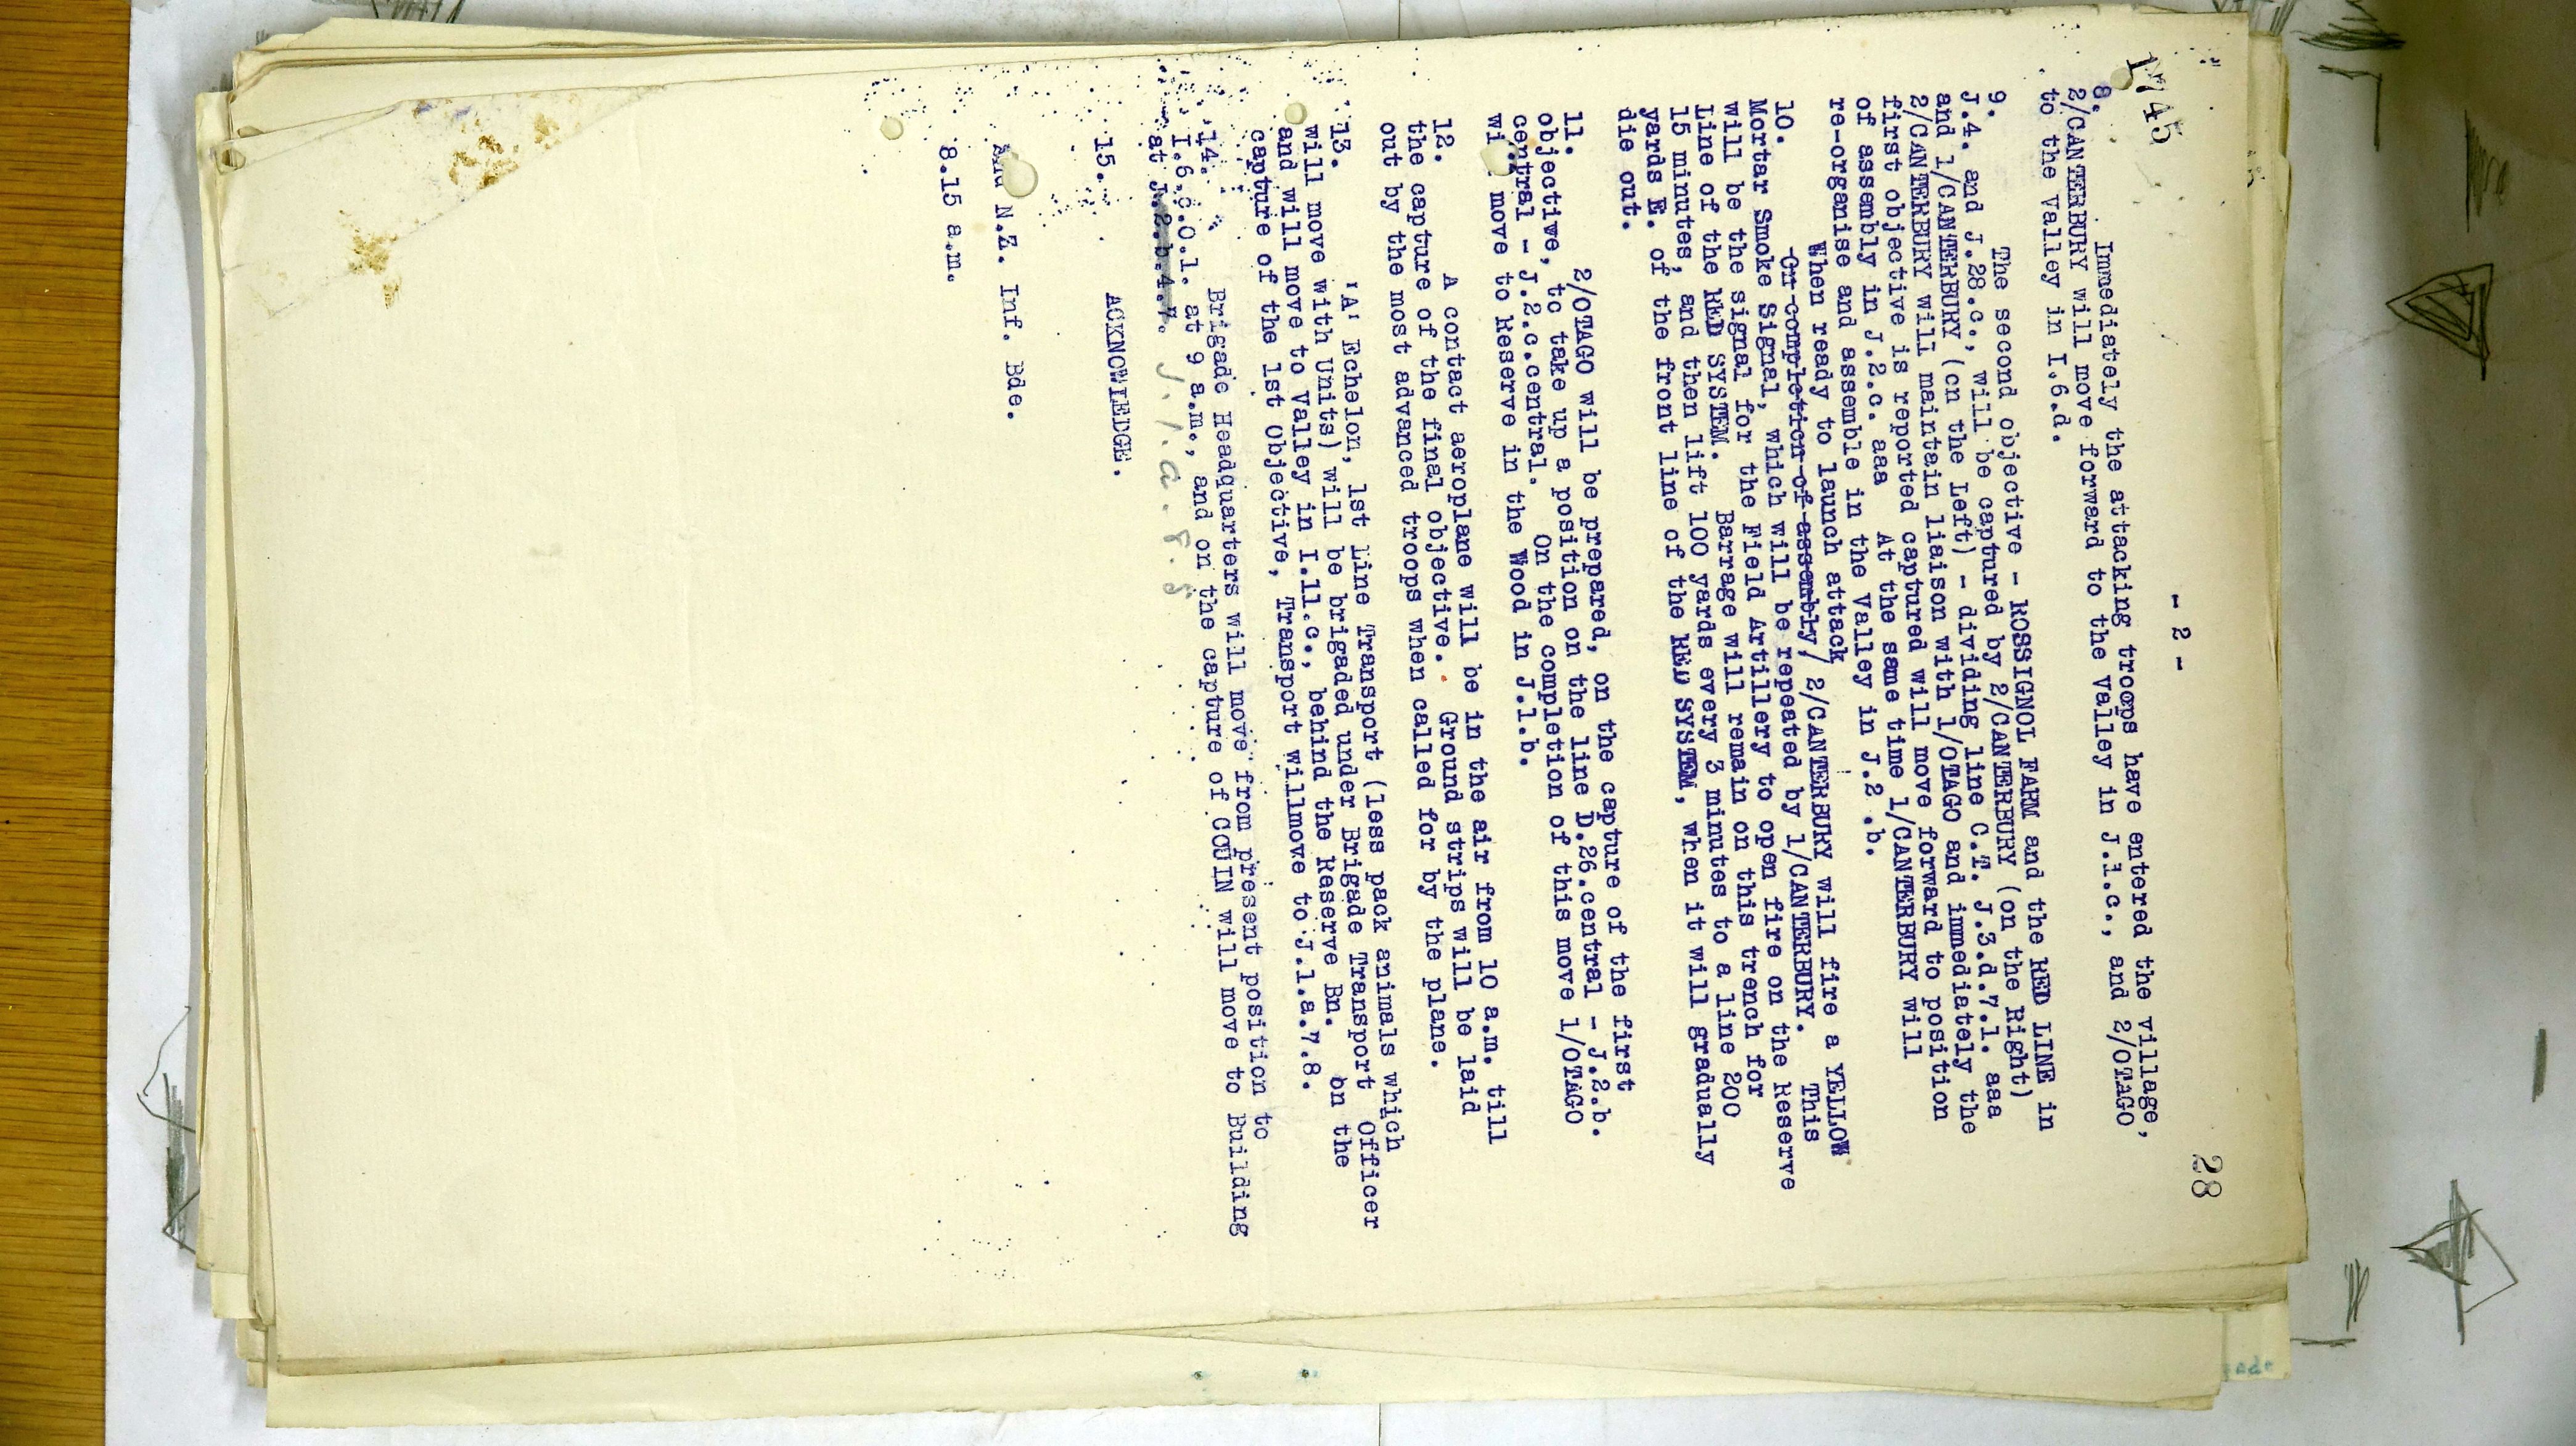 1745
- 2 -
28
8. Immediately the attacking troops have entered the village,
2/CANTERBURY will move forward to the valley in J.1.c., and 2/OTAGO
to the Valley in I.6.d.
9. The second objective - ROSSIGNOL FARM and the RED LINE in
J.4. and J.28.c., will be captured by 2/CANTERBURY (on the Right)
and 1/CANTERBURY (on the Left) - dividing line C.T. J.3.d.7.1. aaa
2/CANTERBURY will maintain liaison with 1/OTAGO and immediately the
first objective is reported captured will move forward to position
of assembly in J.2.c. aaa At the same time 1/CANTERBURY will
re-organise and assemble in the Valley in J.2.b.
When ready to launch attack
10. On completion of assembly, 2/CANTERBURY will fire a YELLOW
Mortar Smoke Signal, which will be repeated by 1/CANTERBURY. This
will be the signal for the Field Artillery to open fire on the Reserve
Line of the RED SYSTEM. Barrage will remain on this trench for
15 minutes, and then lift 100 yards every 3 minutes to a line 200
yards E. of the front line of the RED SYSTEM, when it will gradually
die out.
11. 2/OTAGO will be prepared, on the capture of the first
objective, to take up a position on the line D.26.central - J.2.b.
central - J.2.c.central. On the completion of this move 1/OTAGO
wi move to Reserve in the Wood in J.1.b.
12. A contact aeroplane will be in the air from 10 a.m. till
the capture of the final objective. Ground strips will be laid
out by the most advanced troops when called for by the plane.
13. 'A' Echelon, 1st Line Transport (less pack animals which
will move with Units) will be brigaded under Brigade Transport Officer
and will move to Valley in I.11.c., behind the Reserve Bn. On the
capture of the 1st Objective, Transport willmove to J.1.a.7.8.
14. Brigade Headquarters will move from present position to
I.6.c.0.1. at 9 a.m., and on the capture of COUIN will move to Building
at J.2.b.4.7. J.1.a.8.8
15. ACKNOWLEDGE.
2nd N.Z. Inf. Bde.
8.15 a.m.